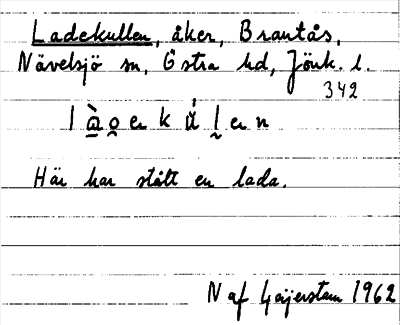 Ladekullen, åker, Brantås,
Nävelsjö sn, Östra hd, Jönk. l.
342
Här har stått en lada.
N af Geijerstam 1962